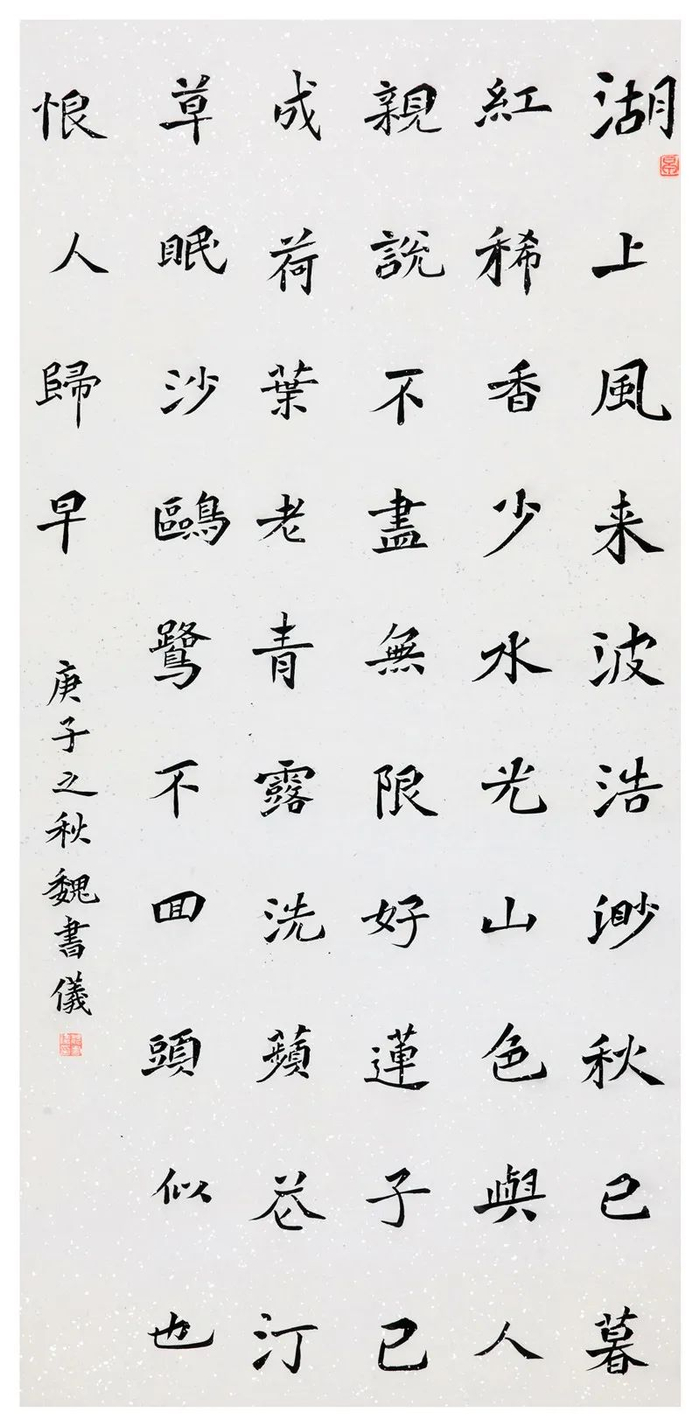 湖上風来波浩渺秋已暮
紅稀香少水光山色與人
親說不盡無限好蓮子已
成荷葉老青露洗蘋花汀
草眠沙鷗鷺不回頭似也
恨人歸早
庚子之秋魏書儀